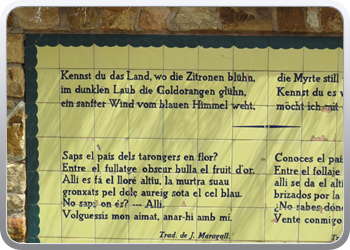 Kennst du das Land, wo die Zitronen blühn,
im dunklen Laub die Goldorangen glühn,
ein sanfter Wind vom blauen Himmel weht,
die Myrte still
Kennst du es
möcht ich mit
Saps el país dels tarongers en flor?
Entre el fullatge obscur bulla el fruit d'or.
Allí es fa el lloré altiu, la murtra suau
gronxats pel dolç aureig sota el cel blau.
No saps on és? --- Allí.
Volguessis mon aimat, anar-hi amb mi.
Trad. de J. Maragall.
Conoces el paí
Entre el follaje
allí se da el altí
brizados por la
¿No sabes dónd
Vente conmigo